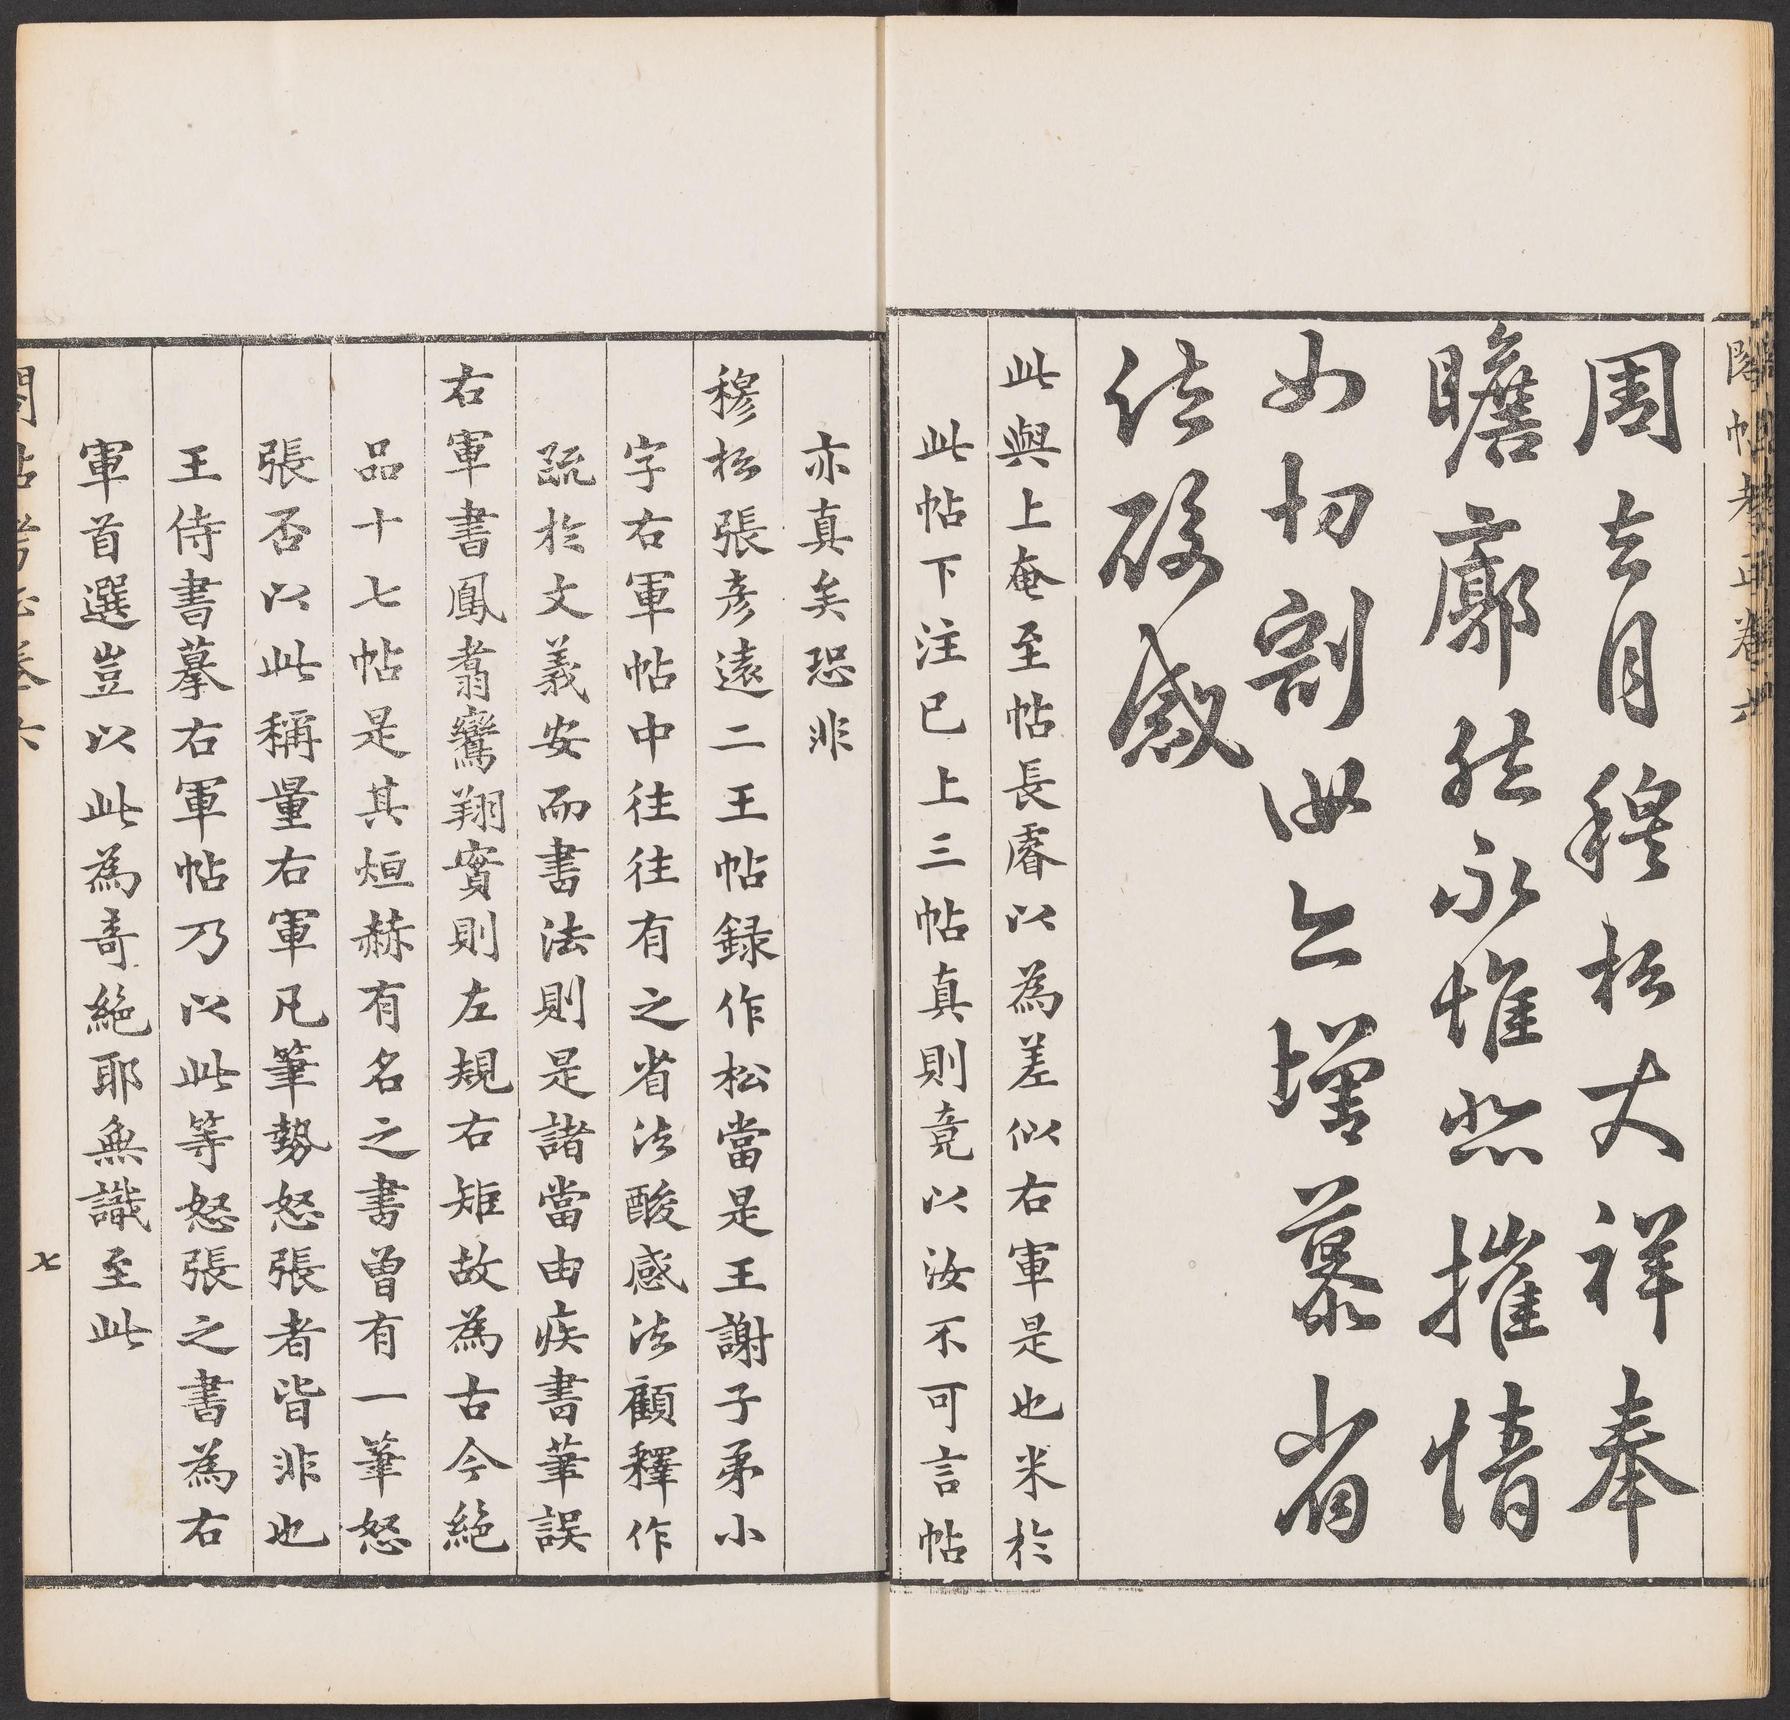 閣帖考正卷六
周去月穆松大祥奉
瞻廓然永惟悲摧情
如切割汝亦增慕省
法酸感
此與上奄至帖長睿以為差似右軍是也米於
此帖下注已上三帖真則竟以汝不可言帖
亦真矣恐非
穆松張彥遠二王帖録作松當是王謝子弟小
字右軍帖中往往有之省法酸感法顧釋作
疏於文義安而書法則是諸當由疾書筆誤
右軍書鳳翥鸞翔實則左規右矩故為古今絕
品十七帖是其烜赫有名之書曾有一筆怒
張否以此稱量右軍凡筆勢怒張者皆非也
王侍書摹右軍帖乃以此等怒張之書為右
軍首選豈以此為奇絕耶無識至此
閣帖考正卷六
七